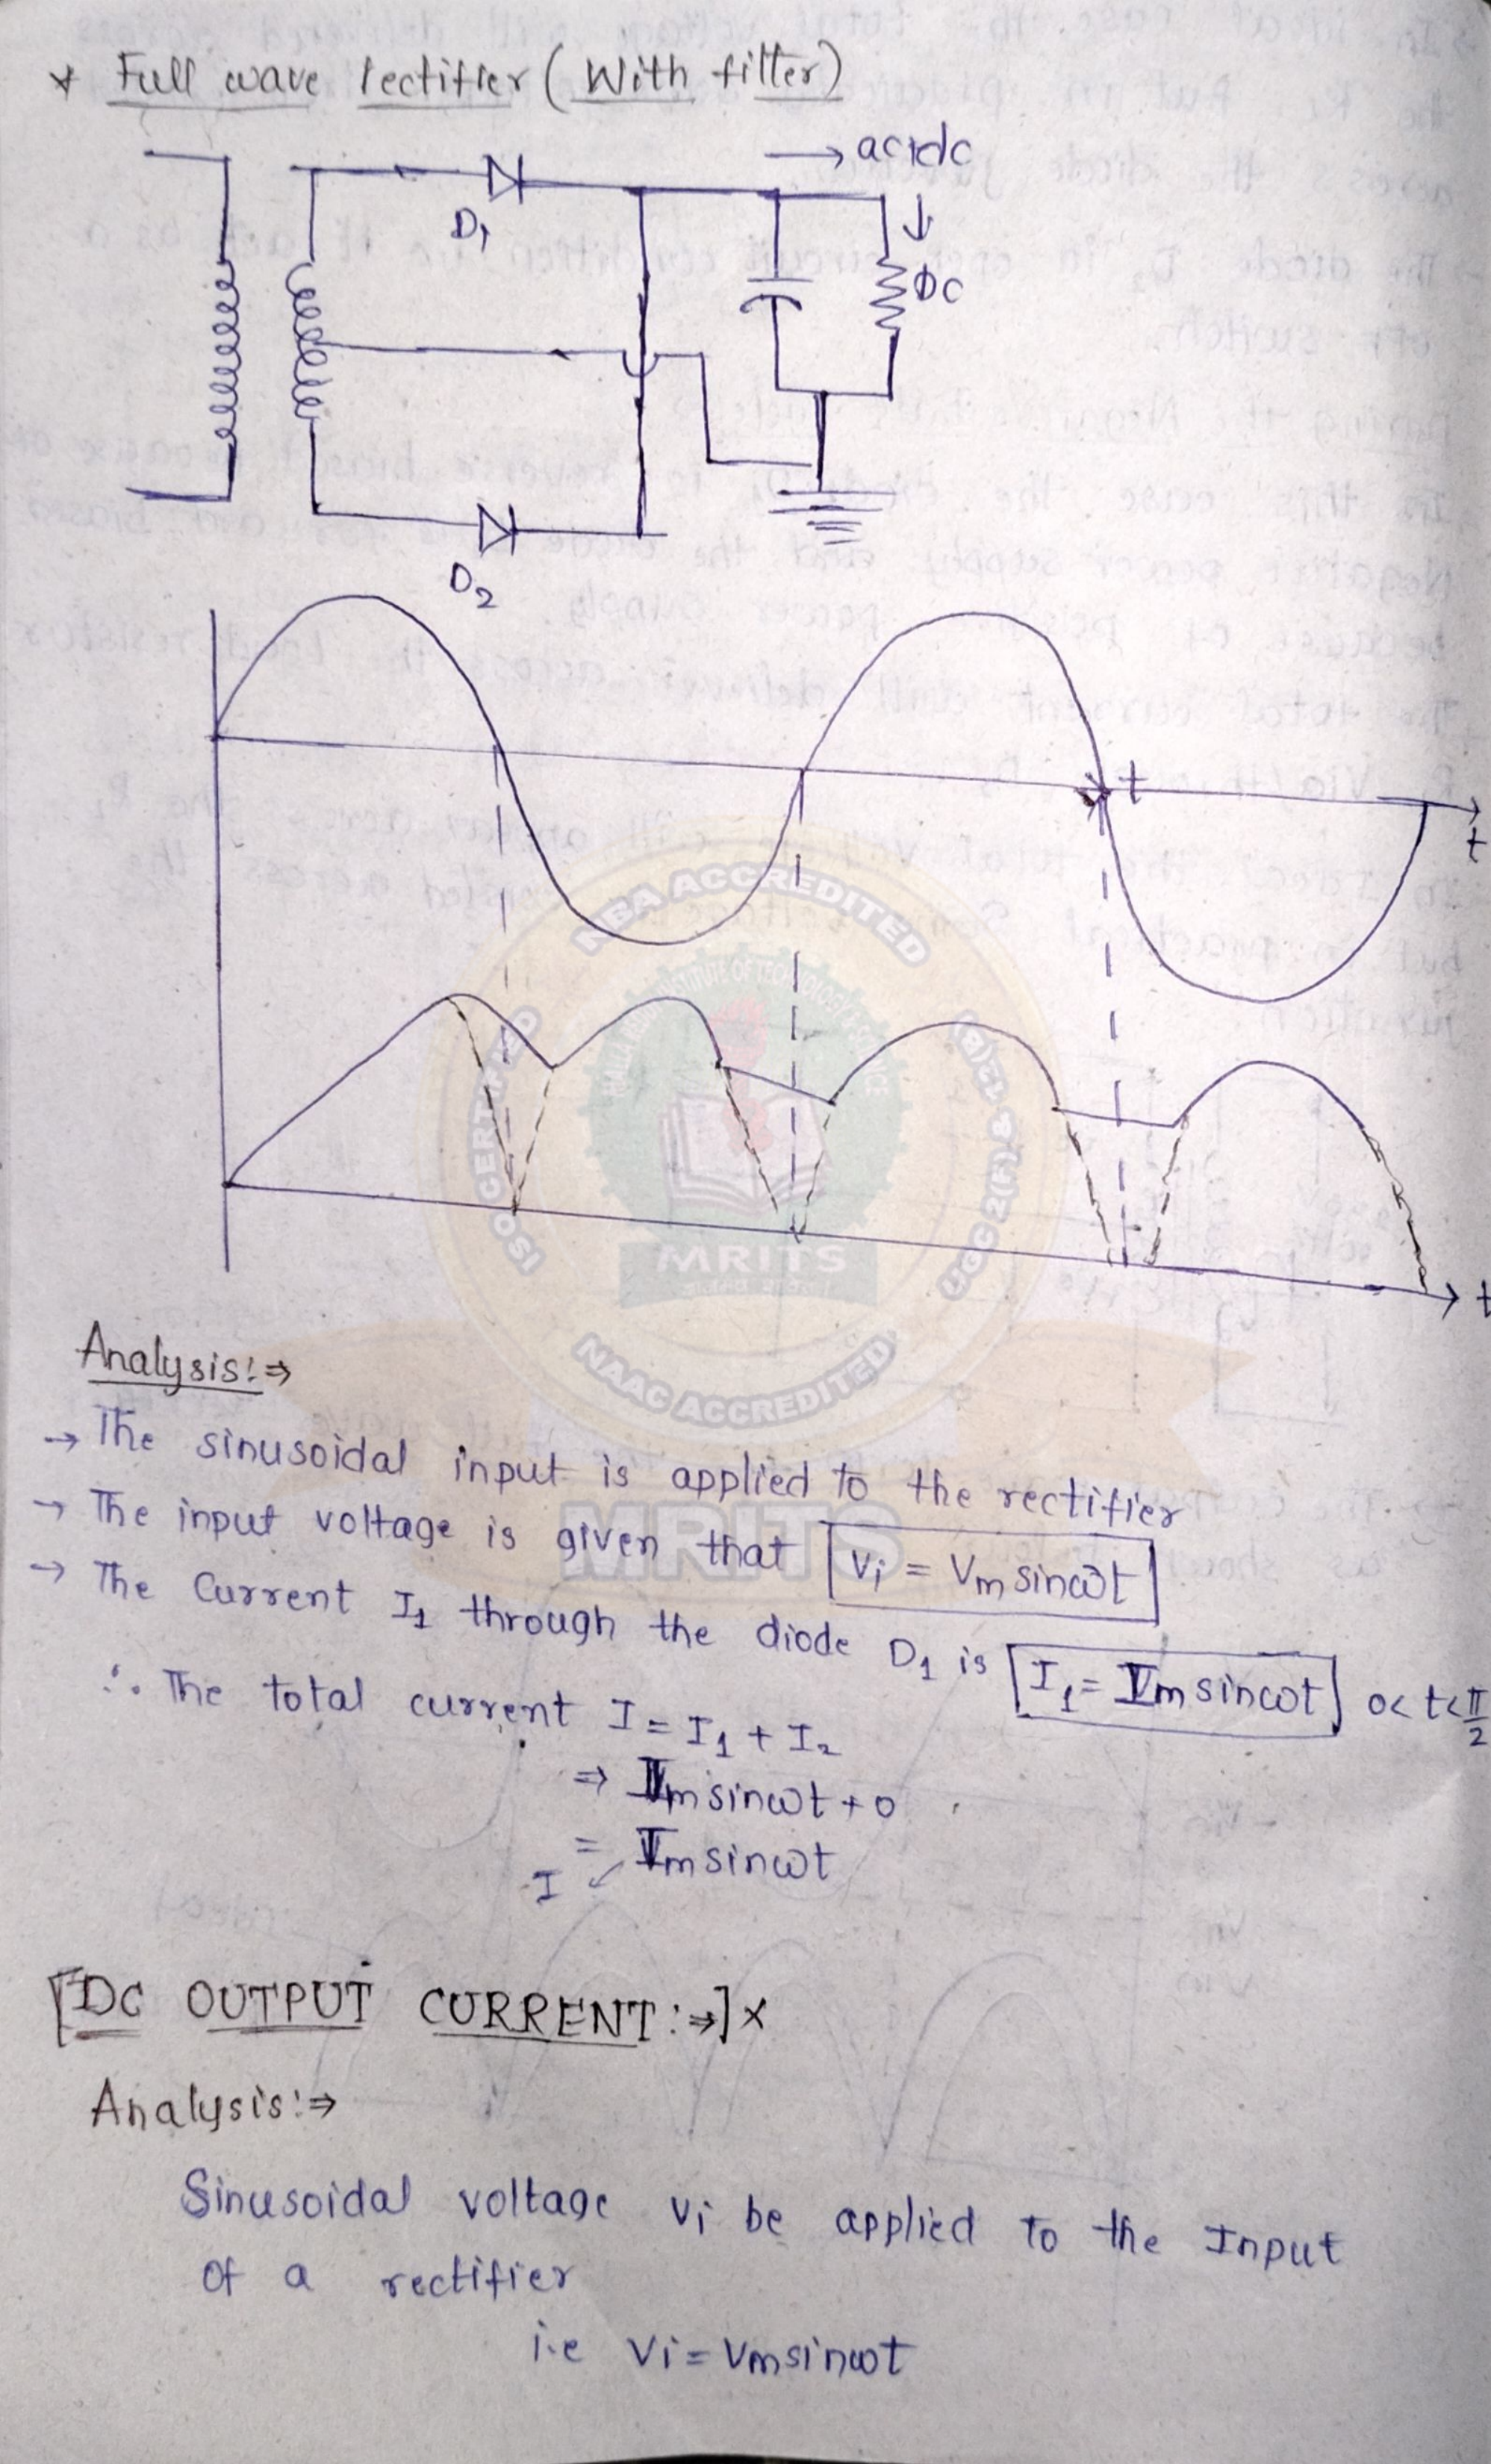 * Full wave rectifier (With filter)
→ ac+dc
D1
DC
D2
t
t
t
NBA ACCREDITED
MRITS
NAAC ACCREDITED
Analysis:⇒
→ The sinusoidal input is applied to the rectifier
MRITS
→ The input voltage is given that Vi = Vm sinωt
→ The Current I1 through the diode D1 is I1 = Im sinωt 0<t<π/2
∴ The total current I = I1 + I2
⇒ Im sinωt + 0
= Im sinωt
I ↙
[DC OUTPUT CURRENT:⇒] x
Analysis:⇒
Sinusoidal voltage Vi be applied to the Input
of a rectifier
i.e Vi = Vm sinωt